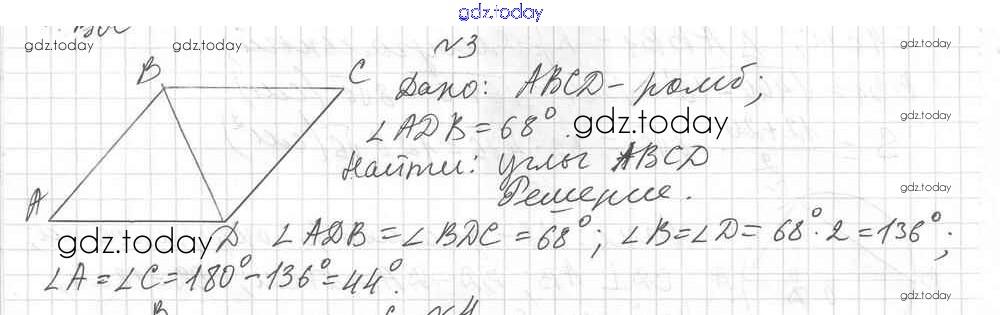 gdz.today
gdz.today gdz.today №3 gdz.today
B C Дано: ABCD - ромб;
∠ADB = 68°. gdz.today gdz.today
Найти: углы ABCD
A Решение. gdz.today
gdz.today D ∠ADB = ∠BDC = 68°; ∠B = ∠D = 68° · 2 = 136°;
∠A = ∠C = 180° - 136° = 44°.
B C №4 gdz.today